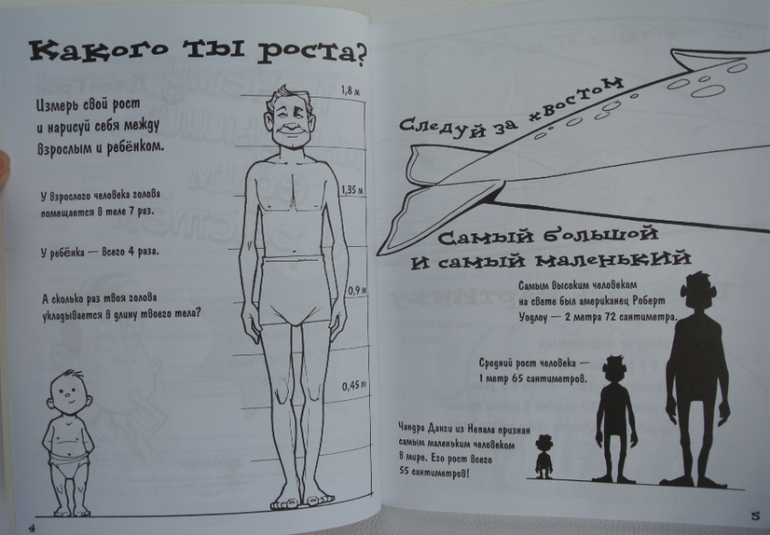 Какого ты роста?
Измерь свой рост
и нарисуй себя между
взрослым и ребёнком.
У взрослого человека голова
помещается в теле 7 раз.
У ребёнка — всего 4 раза.
А сколько раз твоя голова
укладывается в длину твоего тела?
1,8 м
1,35 м
0,9 м
0,45 м
4
Следуй за хвостом
Самый большой
и самый маленький
Самым высоким человеком
на свете был американец Роберт
Уодлоу — 2 метра 72 сантиметра.
Средний рост человека —
1 метр 65 сантиметров.
Чандра Данги из Непала признан
самым маленьким человеком
в мире. Его рост всего
55 сантиметров!
5